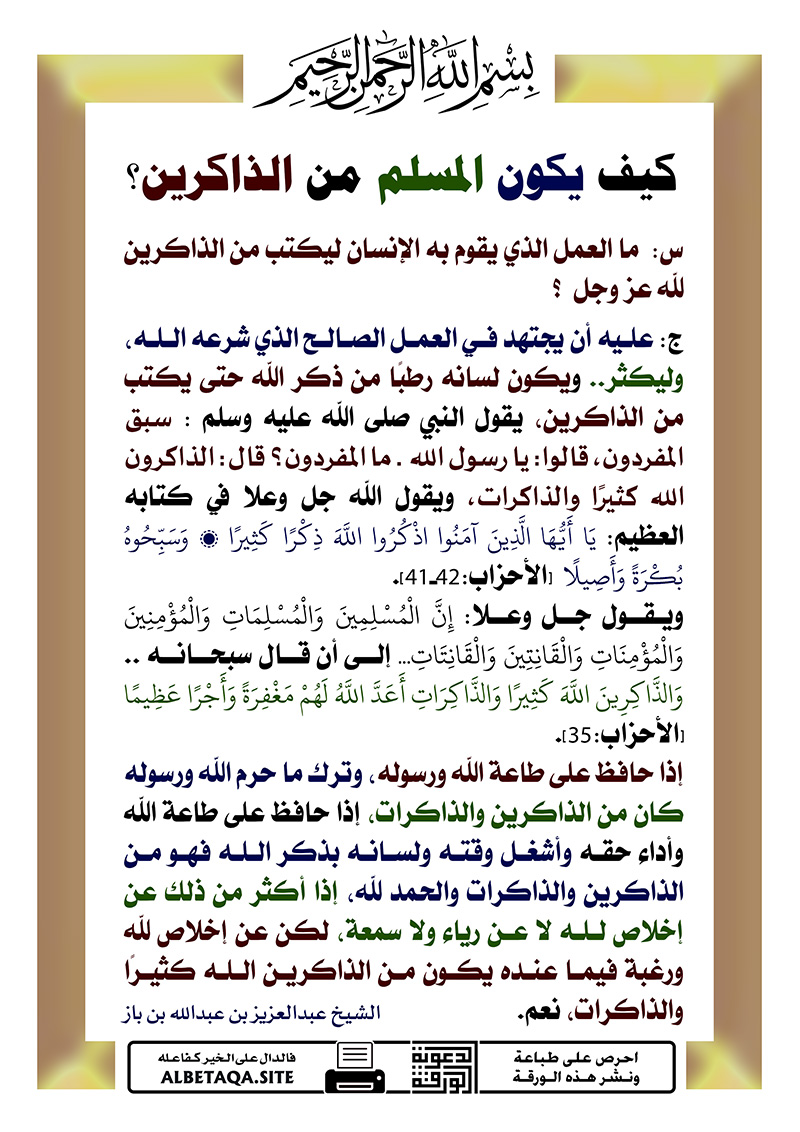 بسم الله الرحمن الرحيم
كيف يكون المسلم من الذاكرين؟
س: ما العمل الذي يقوم به الإنسان ليكتب من الذاكرين
لله عز وجل ؟
ج: عليه أن يجتهد في العمل الصالح الذي شرعه الله،
وليكثر.. ويكون لسانه رطبًا من ذكر الله حتى يكتب
من الذاكرين، يقول النبي صلى الله عليه وسلم : سبق
المفردون، قالوا: يا رسول الله . ما المفردون؟ قال: الذاكرون
الله كثيرًا والذاكرات، ويقول الله جل وعلا في كتابه
العظيم: يَا أَيُّهَا الَّذِينَ آمَنُوا اذْكُرُوا اللَّهَ ذِكْرًا كَثِيرًا ۞ وَسَبِّحُوهُ
بُكْرَةً وَأَصِيلًا [الأحزاب:42ـ41].
ويقول جل وعلا: إِنَّ الْمُسْلِمِينَ وَالْمُسْلِمَاتِ وَالْمُؤْمِنِينَ
وَالْمُؤْمِنَاتِ وَالْقَانِتِينَ وَالْقَانِتَاتِ... إلى أن قال سبحانه ..
وَالذَّاكِرِينَ اللَّهَ كَثِيرًا وَالذَّاكِرَاتِ أَعَدَّ اللَّهُ لَهُمْ مَغْفِرَةً وَأَجْرًا عَظِيمًا
[الأحزاب:35].
إذا حافظ على طاعة الله ورسوله، وترك ما حرم الله ورسوله
كان من الذاكرين والذاكرات، إذا حافظ على طاعة الله
وأداء حقه وأشغل وقته ولسانه بذكر الله فهو من
الذاكرين والذاكرات والحمد لله، إذا أكثر من ذلك عن
إخلاص لله لا عن رياء ولا سمعة، لكن عن إخلاص لله
ورغبة فيما عنده يكون من الذاكرين الله كثيرًا
والذاكرات، نعم. الشيخ عبدالعزيز بن عبدالله بن باز
احرص على طباعة
ونشر هذه الورقة
الورقة الدعوية
فالدال على الخير كفاعله
ALBETAQA.SITE